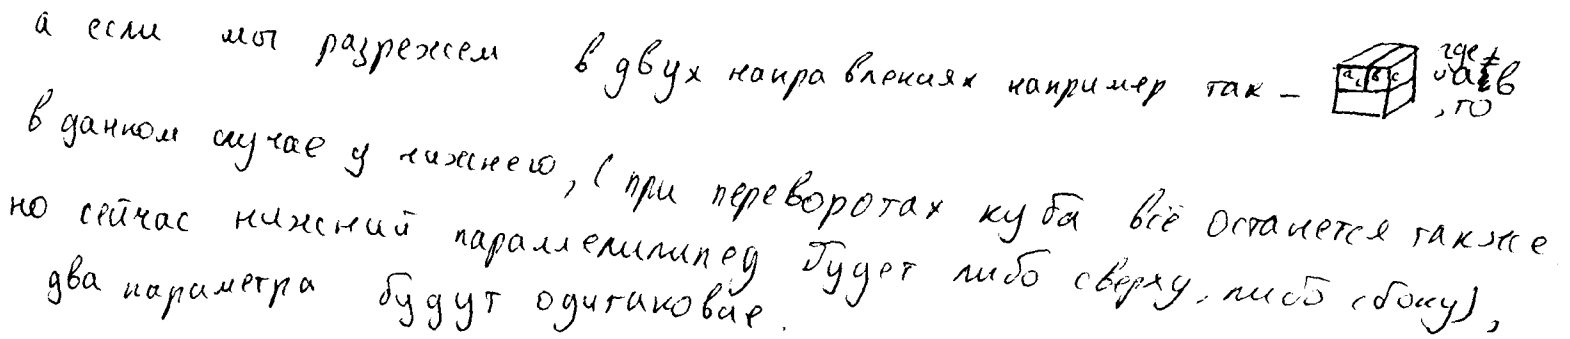 а если мы разрежем в двух направлениях например так – где a≠в, то
в данном случае у нижнего, (при переворотах куба всё останется также
но сейчас нижний параллелипипед будет либо сверху, либо сбоку),
два параметра будут одинаковые.